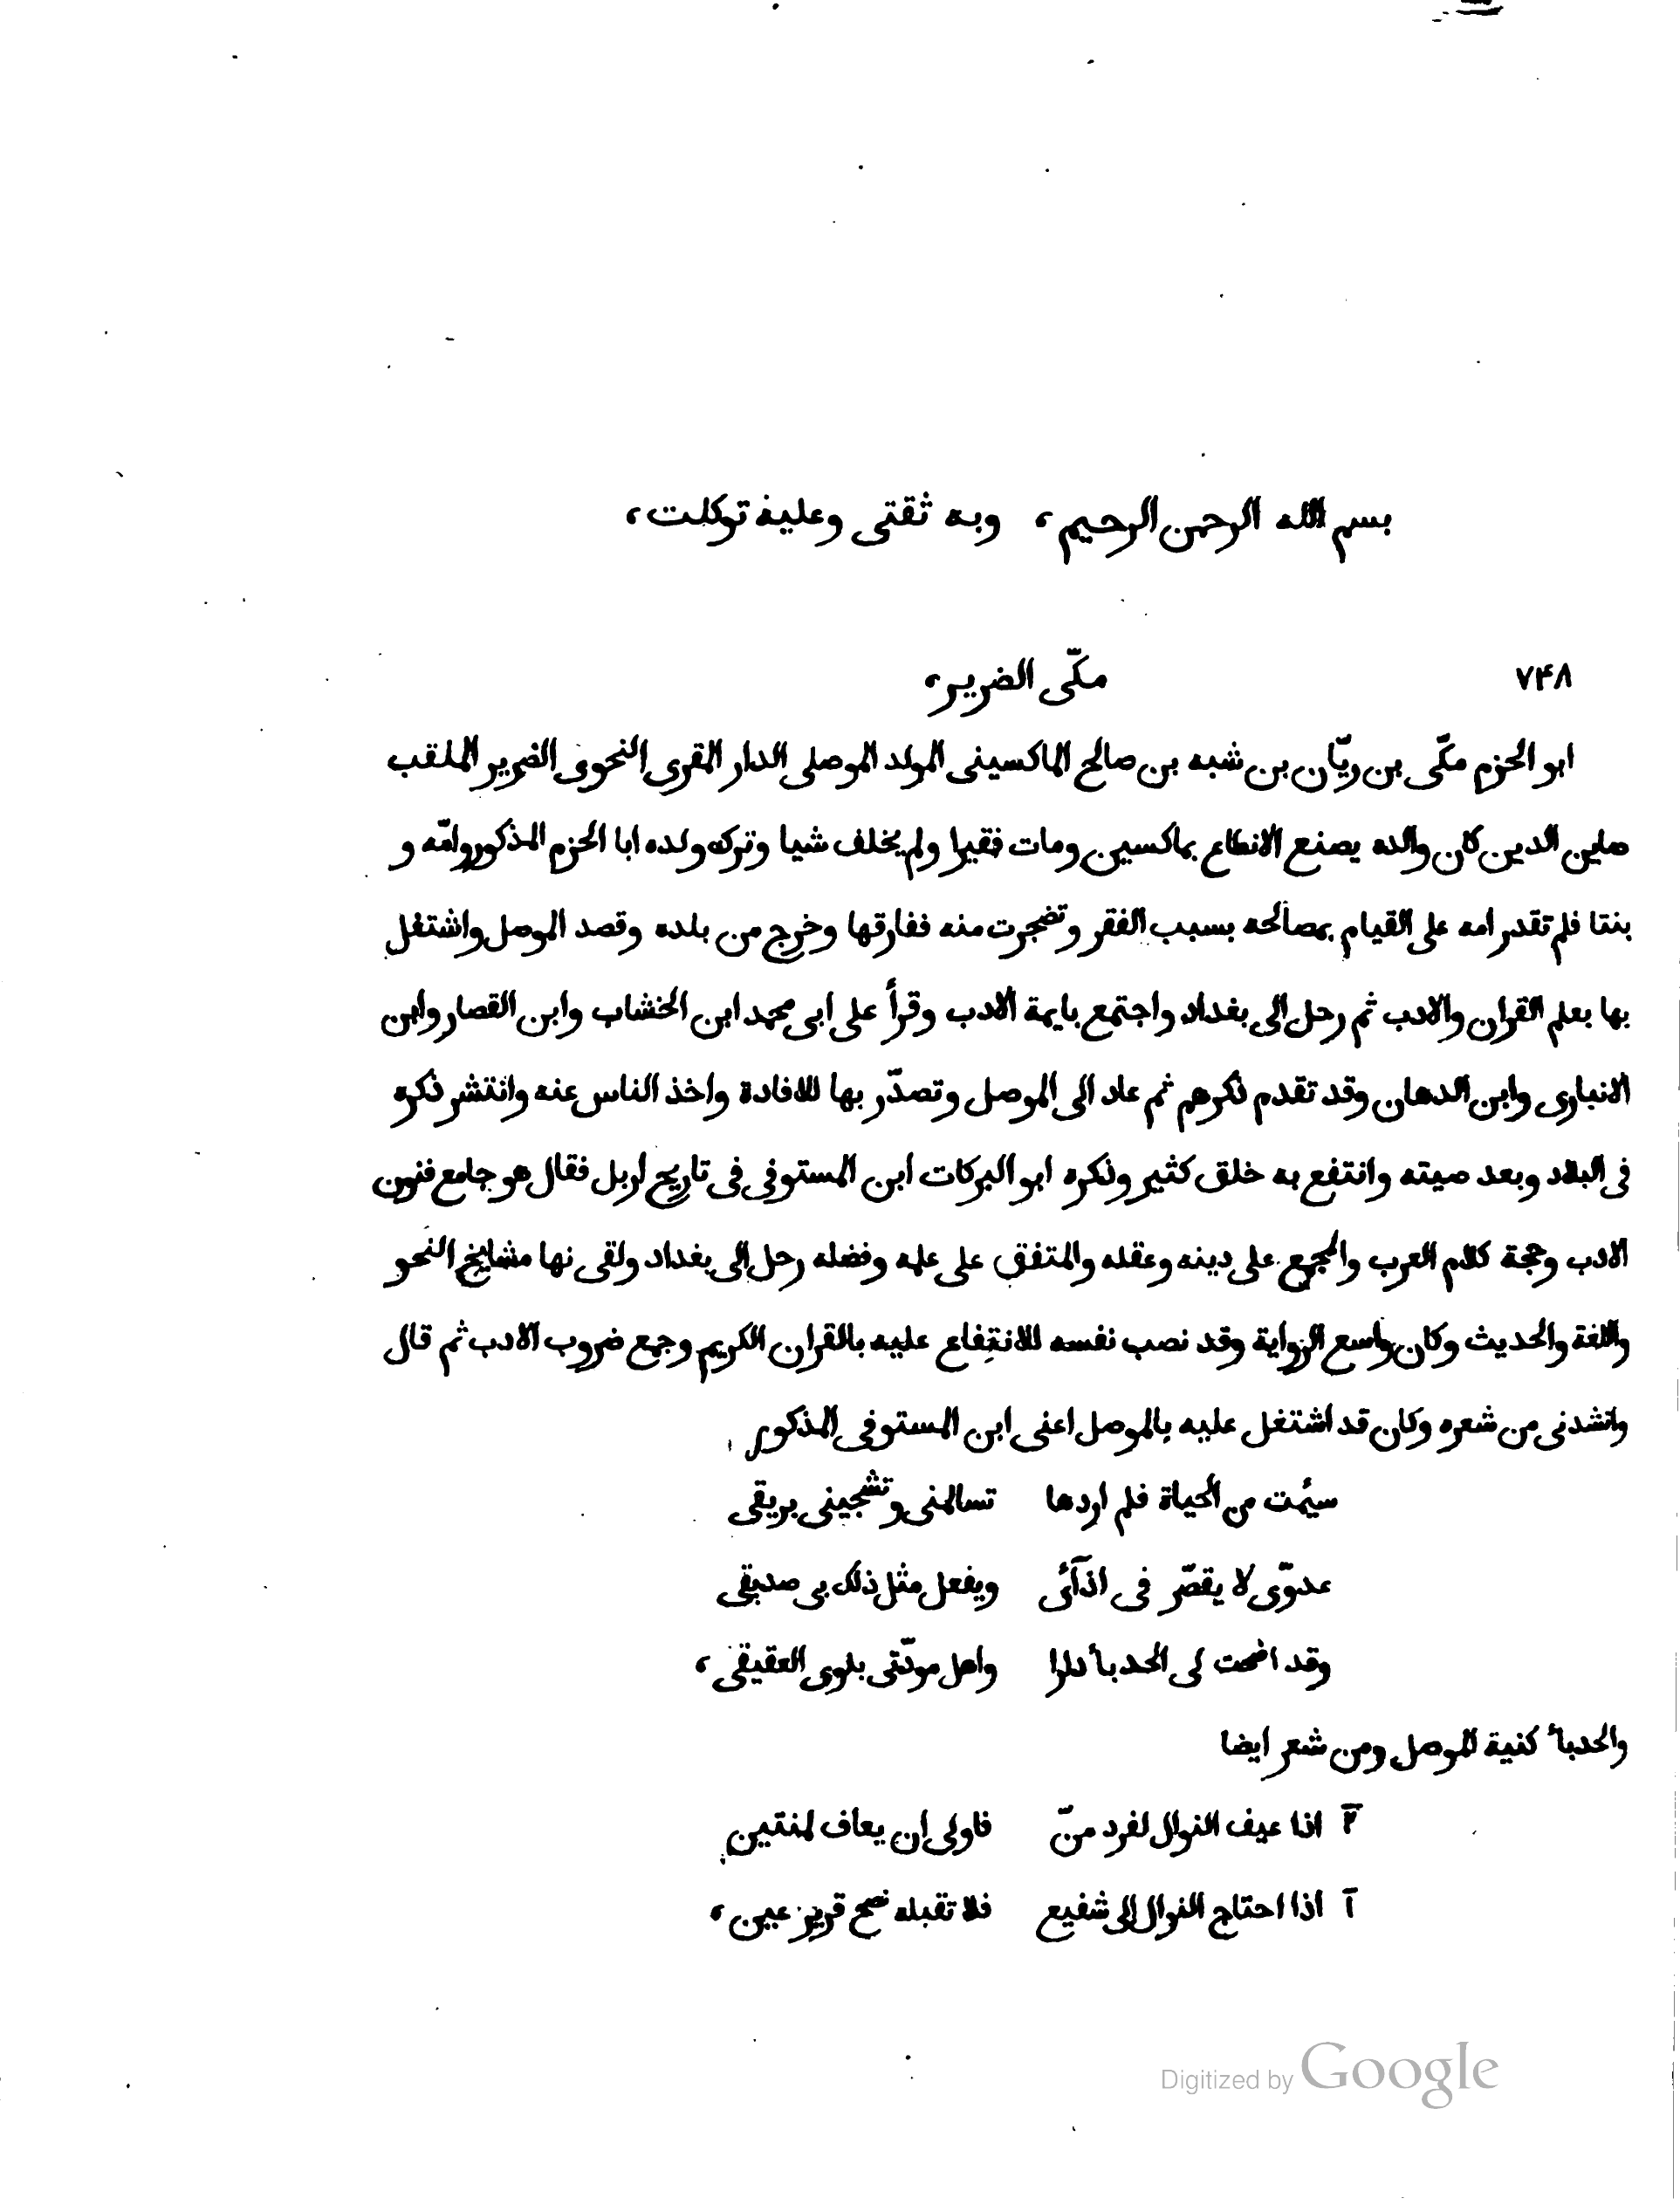 بسم الله الرحمن الرحيم، وبه ثقتى وعليه توكلت،
٧٤٨ مكّى الضرير،
ابو الحزم مكّى بن ريّان بن شبه بن صالح الماكسينى المولد الموصلى الدار المقرى النحوى الضرير الملقب
صاين الدين كان والده يصنع الانطاع بماكسين ومات فقيرا ولم يخلف شيا وترك ولده ابا الحزم المذكور وامّه و
بنتا فلم تقدر امه على القيام بمصالحه بسبب الفقر وتضجرت منه ففارقها وخرج من بلده وقصد الموصل واشتغل
بها بعلم القران والادب ثم رحل الى بغداد واجتمع بايمة الادب وقرأ على ابى محمد ابن الخشاب وابن القصار وابن
الانبارى وابن الدهان وقد تقدم ذكرهم ثم عاد الى الموصل وتصدّر بها للافادة واخذ الناس عنه وانتشر ذكره
فى البلاد وبعد صيته وانتفع به خلق كثير وذكره ابو البركات ابن المستوفى فى تاريخ اربل فقال هو جامع فنون
الادب وحجة كلام العرب والمجمع على دينه وعقله والمتفق على علمه وفضله رحل الى بغداد ولقى نها مشايخ النحو
واللغة والحديث وكان واسع الرواية وقد نصب نفسه للانتِفاع عليه بالقران الكريم وجمع ضروب الادب ثم قال
وانشدنى من شعره وكان قد اشتغل عليه بالموصل اعنى ابن المستوفى المذكور
سيُمت من الحياة فلم اردها تسالمنى وتشجينى بريقى
عدوّى لا يقصّر فى اذآئى ويفعل مثل ذلك بى صديقى
وقد اضحت لى الحدبأ دارا واهل مودّتى بلوى العقيقى،
والحدبأ كنية للموصل ومن شعر ايضا
٢ اذا عيف النوال لفرد منّ فاولى ان يعاف لمنتين
ا اذا احتاج النوال الى شفيع فلا تقبله تضح قرير عين،
Digitized by Google